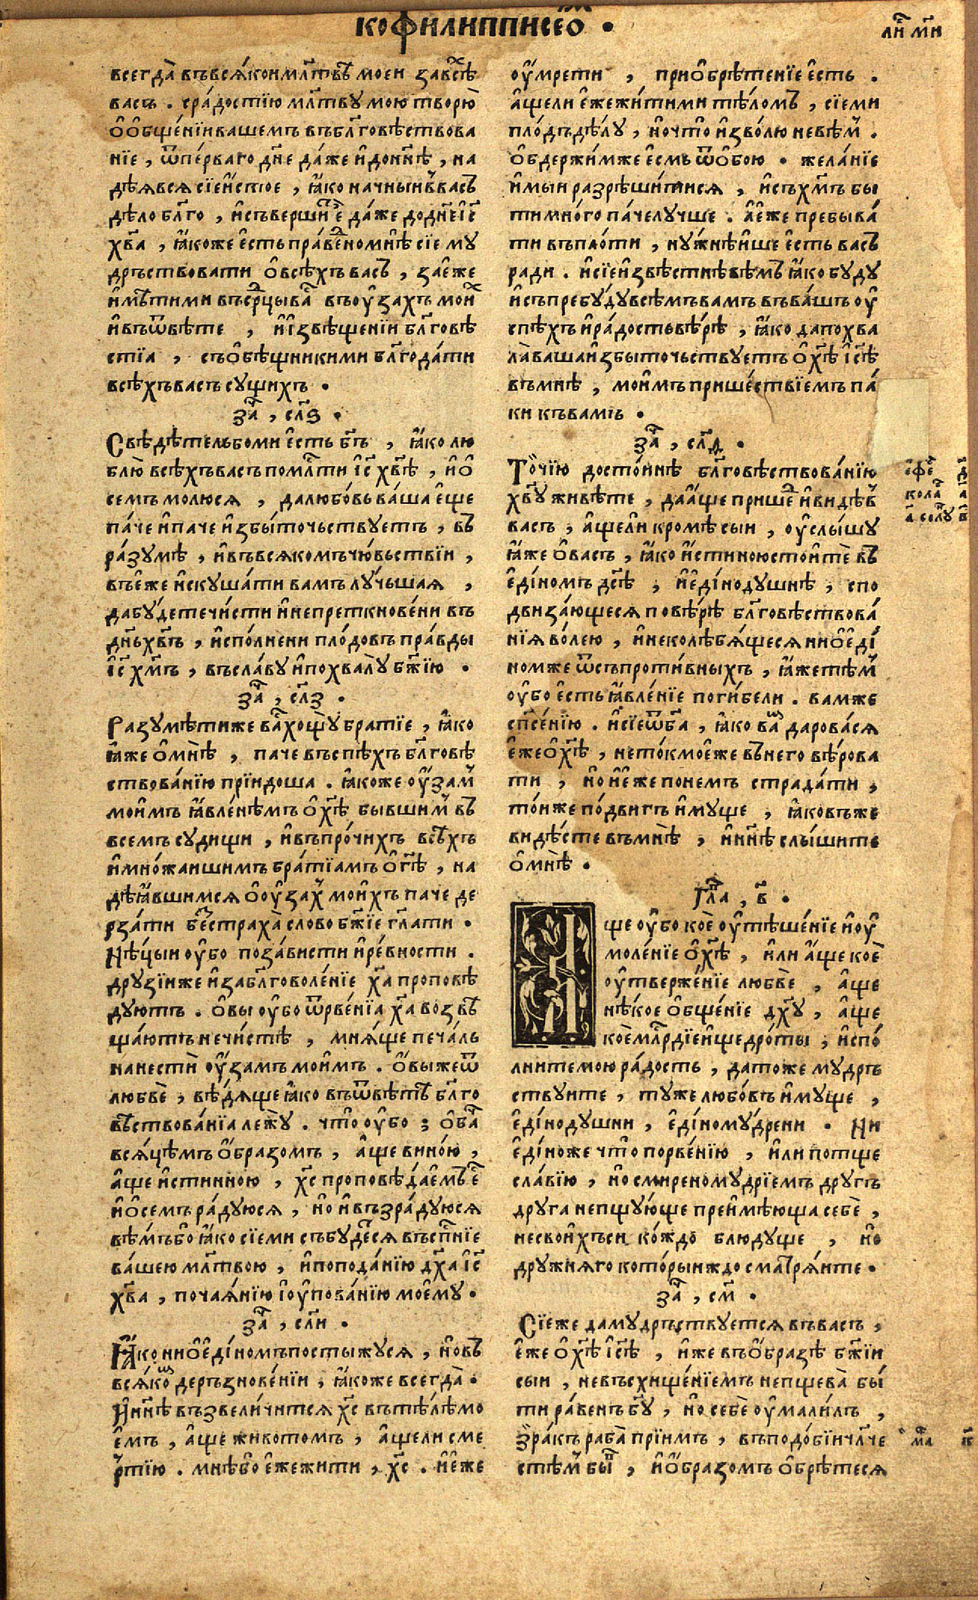 кофилипписеѡм҃ .
всегда̀ въвсѧ́кои мл҃твѣ моеи завсѣ̀
васъ . срадостїю мл҃тву мою творю̀
ѻ̑ѻ̑бще́нїи вашемъ въбл҃говѣствова
нїе , ѿпе́рваго дн҃е да́же и҆донн҃ѣ , на
дѣѧвсѧ сїеи́стое , ꙗ҆ко наче́ныи въ васъ
дѣло бл҃го , и҆съверши́тъ е҆̀ да́же додн҃е і҆с҃
хв҃а , ꙗ҆коже е҆сть пра́ведно мнѣ сїе му
дръствовати ѻ̑всѣ́хъ васъ , заеже
и҆мѣ́ти ми въср҃цы ва̀съ въоу҆́захъ мои̑х
и҆въѿвѣте , и҆и҆звѣще́нїи бл҃говѣ
стїа , съѻ̑бѣ́щники ми бл҃года́ти
всѣ́хъ васъ су́щихъ .
за҃ , сл҃ѕ .
Свѣдѣ́тель бо ми е҆сть бг҃ъ , ꙗ҆ко лю
блю̀ всѣ́хъ васъ помл҃ти і҆с҃ хв҃ѣ , и҆ѻ̑
семъ молюсѧ , далюбо́вь ва́ша е҆ще
па́че и҆паче и҆збы́точьствуетъ , въ
ра́зумѣ , и҆въвсѧкомъ чю́вьствїи ,
въе́же и҆скуша́ти вамъ лу́чьшаѧ ,
дабу́дете чи́сти и҆непреткнове́ни въ
дн҃ь хв҃ъ , и҆спо́лнени пло́довъ пра́вды
і҆с҃ хм҃ъ , въсла́ву и҆похвалу̀ бж҃їю .
за҃ , сл҃з .
Разумѣ́тиже ва́мъ хощу̀ братїе , ꙗ҆ко
ꙗ҆́же ѻ̑мнѣ̀ , паче въспѣ́хъ бл҃говѣ
ствова́нїю прїидоша . ꙗ҆коже оу҆́замъ
мои́мъ ꙗ҆вле́нѣмъ ѻ̑хс҃ѣ бы́вшимъ въ
всемъ суди́щи , и҆въпро́чихъ всѣ́хъ
и҆мно́жаишимъ бра́тїамъ ѻ̑гд҃ѣ , на
дѣ́ꙗвшимсѧ ѻ̑оу҆́захъ мои́хъ паче де
рза́ти бестраха̀ слово бж҃їе гл҃ати .
Нѣ́цыи оу҆бо поза́висти и҆ре́вности .
друзїиже и҆забл҃говоле́нїе ха҃ проповѣ
дуютъ . ѻ̑вы оу҆бо ѿрве́нїа ха҃ возвѣ
ща́ютъ нечи́стѣ , мнѧ́ще печа́ль
нанестѝ оу҆́замъ мои́мъ . ѻ̑вы же ѿ
любвѐ , вѣ́дѧще ꙗ҆ко въѿвѣ́тъ бл҃го
вѣствова́нїа лежу̀ . что̀ оу҆бо ; ѻ̑ба́че
всѧ́цѣмъ ѻ̑́бразомъ , а҆́ще вино́ю ,
а҆́ще и҆стинною , хс҃ проповѣ́даемъ е҆сть
и҆ѻ̑семъ ра́дуюсѧ , но и҆възра́дуюсѧ
вѣ́мъ бо ꙗ҆ко сїе ми събу́десѧ въсп҃нїе
ва́шею мл҃твою , и҆пода́нїю дх҃а і҆с҃
хв҃а , почаѧ́нїю і҆оу҆пова́нїю мое́му .
за҃ , сл҃и .
Ꙗ҆́ко ниѻ̑е҆ди́номъ постыжусѧ , но въ
всѧ́комъ деръзнове́нїи , ꙗ҆коже всегда̀ .
И҆нн҃ѣ възвели́читсѧ хс҃ въ тѣ́лѣ мо
е́мъ , а҆́ще живото́мъ , а҆́щели сме
ртїю . мнѣ́ бо е҆же жи́ти , хс҃ . и҆е́же
оу҆мре́ти , прио̑брѣ́тенїе е҆сть .
а҆́щели е҆́же жи́ти ми тѣ́ломъ , сїе ми
пло́дъ дѣ́лу , и҆что̀ и҆зво́лю невѣ́мъ .
ѻ̑бдержи́мже е҆смь ѿѻ̑бою . жела́нїе
и҆мы́и разрѣши́тисѧ , и҆съхм҃ъ бы
ти много па́че лучше . а҆е́же пребыва́
ти въпло́ти , нужнѣ́ише е҆сть васъ
ради . и҆сїе и҆звѣ́стнѣ вѣ́мъ ꙗ҆ко буду
и҆съпребу́ду всѣ́мъ вамъ въва́шъ оу҆
спѣ́хъ и҆ра́дость вѣ́рѣ , ꙗ҆ко да похва
ла̀ ваша и҆збы́точьствуетъ ѻ̑хс҃ѣ і҆сѣ
въмнѣ̀ , мои́мъ прише́ствїемъ па́
ки къ вамъ .
за҃ , сл҃д .
То́чїю досто́йнѣ бл҃говѣствова́нїю
хв҃у живѣ́те , да а҆́ще прише́д и҆видѣ́въ
васъ , а҆́щели кромѣ̀ сыи , оу҆слы́шу
ꙗ҆́же ѻ̑васъ , ꙗ҆ко и҆стиною стоитѐ въ
е҆ди́номъ дс҃ѣ , и҆е҆динодушнѣ , спо
двиза́ющесѧ повѣ́рѣ бл҃говѣствова́
нїѧ во́лею , и҆неколѣ́бѧщесѧ ниѻ̑е҆ди́
номже ѿсъпроти́вныхъ , ꙗ҆́же тѣ́мъ
оу҆бо е҆сть ꙗ҆вле́нїе поги́бели . вам же
сп҃се́нїю . и҆сїе ѿбг҃а , ꙗ҆ко ва́мъ дарова́сѧ
е҆же ѻ̑хс҃ѣ , нетокмо е҆же вънего вѣ́рова
ти , но и҆е҆́же понемъ страда́ти ,
то́иже по́двигъ и҆му́ще , ꙗ҆ковъже
ви́дѣсте въмнѣ̀ , и҆нн҃ѣ слы́шите
ѻ̑мнѣ̀ .
Гла҃ , в҃ .
А҆ще оу҆бо коѐ оу҆тѣше́нїе и҆оу҆
моле́нїе ѻ̑хс҃ѣ , и҆ли а҆ще коѐ
оу҆тверже́нїе любвѐ , а҆́ще
нѣ́кое ѻ̑бще́нїе дх҃у , а҆́ще
коѐ мл҃рдїе и҆щедро́ты , и҆спо́
лните мою ра́дость , датоже мудръ
ствуите , ту́же любо́въ и҆му́ще ,
е҆динодушни , е҆диному́дрени . Ни
е҆ди́ноже что̀ порве́нїю , и҆ли потще
сла́вїю , но смиреному́дрїемъ другъ
друга непщую́ще преи҆мѣ́юща себѐ ,
несвои́хъ си ко́ждо блюду́ще , но
дружнѧ́го ко́торыиждо сматрѧ́ите .
за҃ , см҃ .
Сїе же да мудръствуетсѧ въвасъ ,
е҆же ѻ̑хс҃ѣ і҆сѣ , и҆́же въѻ̑́бразѣ бж҃їи
сыи , невъсхище́нїемъ непщева̀ бы́
ти ра́венъ бг҃у , но себѐ оу҆мали́лъ ,
зра́къ раба̀ прїимъ , въподо́бїи чл҃че
стѣмъ бы́въ , и҆ѻ̑́бразомъ ѻ̑брѣ́тесѧ